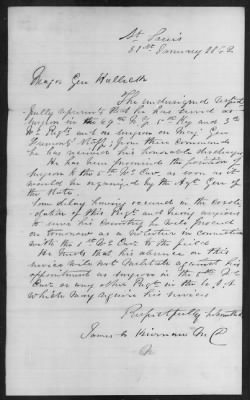 St Louis
21st January 1862
Major Gen Halleck
The undersigned respect-
fully represents that he has served as
Surgeon in the 69th N.Y. 5th Ky and 3rd
Mo Regts and as Surgeon on Maj Gen
Fremonts Staff; from these commands
he has received his honorable discharges
He has been promised the position of
Surgeon to the 5th Mo Cav, as soon as it
would be organized by the Agt Gen of
the State
Some delay having occured in the consol-
idation of this Regt and being anxious
to serve his Country he will proceed
on tomorrow as a volunteer in connection
with the 1st Mo Cav to the field
He trusts that his absence on this
service will not militate against his
appointment as Surgeon in the 5th Mo
Cav or any other Regt in the U.S.A
which may require his services
Respectfully submitted
James L Kiernan MD